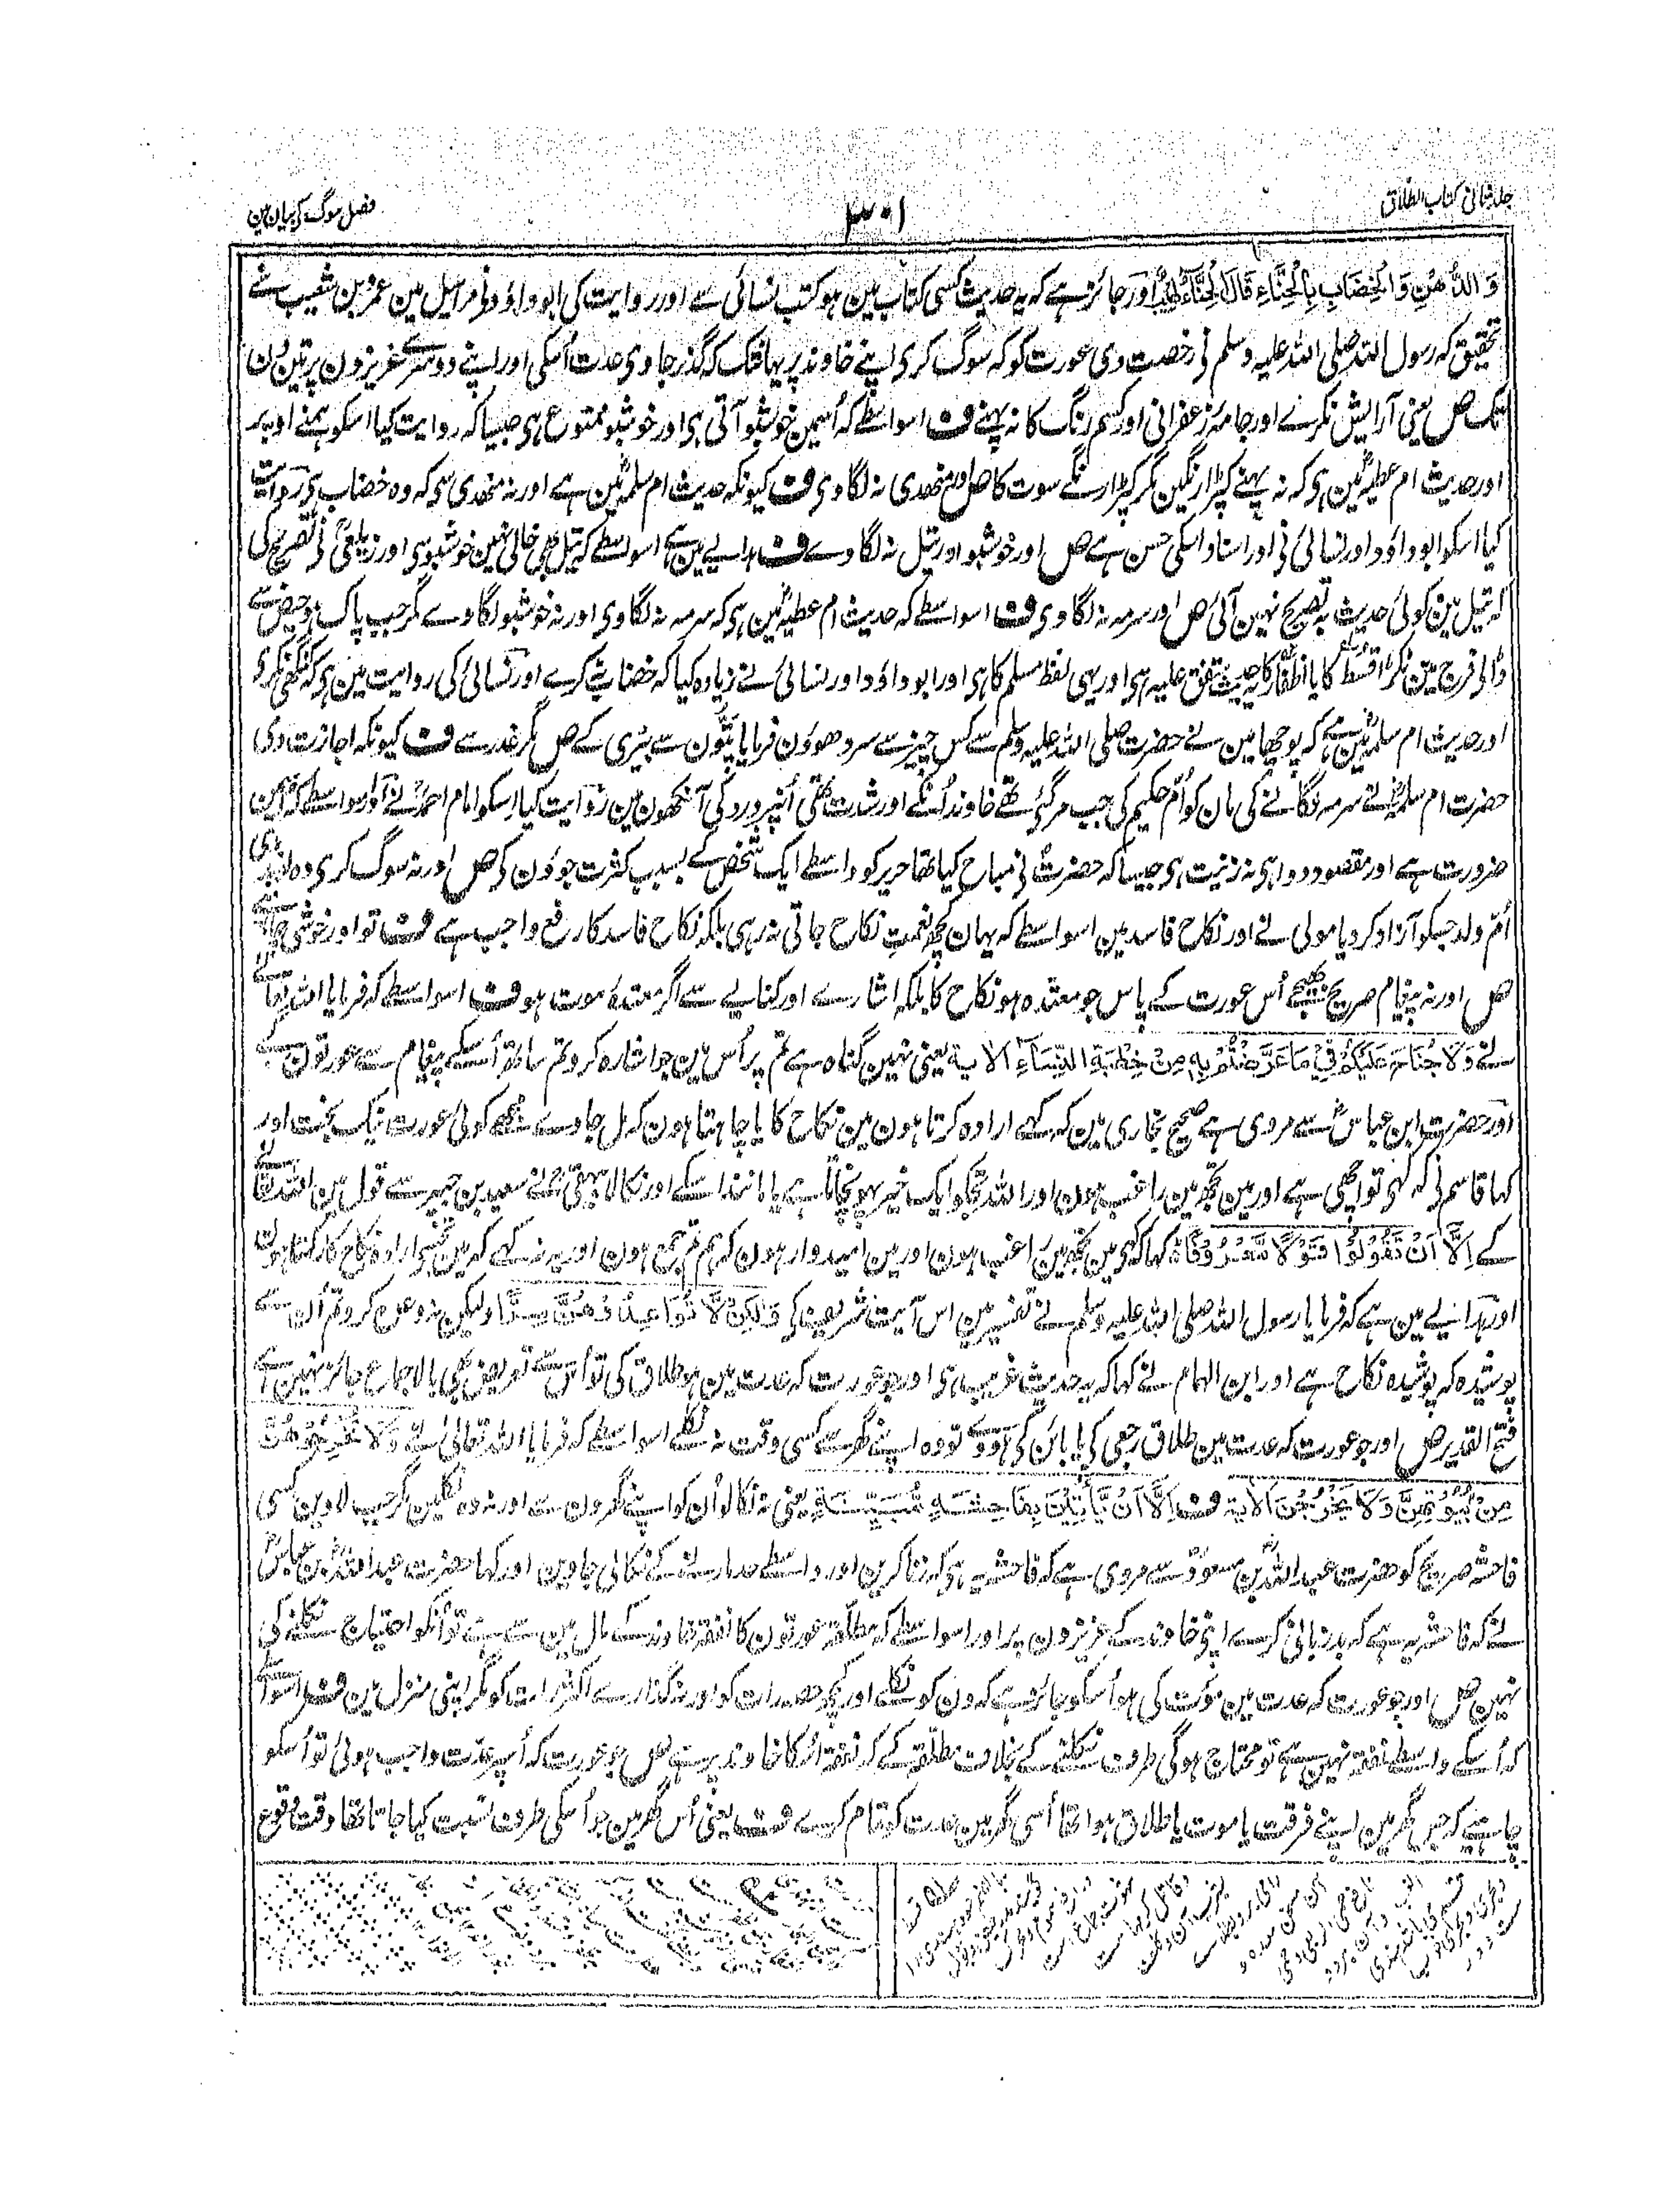 جلد ثانی کتاب الطلاق
۳۰۱
فصل سوگ کے بیان مین
وَالدُّهْنِ وَالْخِضَابِ بِالْحِنَّاءِ قَالَ الْحِنَّاءُ طِيْبٌ اور جائز ہے کہ یہ حدیث کسی کتاب مین ہو کتب نسائی سے اور روایت کی ابو داؤد نے مراسیل مین عمرو بن شعیب سے
تحقیق کہ رسول اللہ صلی اللہ علیہ وسلم نے رخصت دی عورت کو کہ سوگ کری اپنے خاوند پر یہانتک کہ گذر جاوی عدت اُسکی اور اپنے دوسرے عزیزون پر تین دن
تک ص یعنی آرایش نکرے اور جامہ زعفرانی اور کسم رنگ کا نہ پہنے ف اسواسطے کہ اُسمین خوشبو آتی ہی اور خوشبو ممنوع ہی جیسا کہ روایت کیا اسکو ہمنے اوپر
اور حدیث ام عطیہ مین ہی کہ نہ پہنے کپڑا رنگین مگر کپڑا رنگے سوت کا ص اور مہندی نہ لگاوی ف کیونکہ حدیث ام سلمہ مین ہے اور نہ مہندی ہی کہ وہ خضاب ہی روایت
کیا اسکو ابو داؤد اور نسائی نے اور اسناد اسکی حسن ہے ص اور خوشبو اور تیل نہ لگاوے ف ہدایے مین ہے اسواسطے کہ تیل بھی خالی نہین خوشبو سی اور زیلعی نے تصریح کی
کہ تیل مین کوئی حدیث بہ تصریح نہین آئی ص اور سرمہ نہ لگاوی ف اسواسطے کہ حدیث ام عطیہ مین ہی کہ سرمہ نہ لگاوی اور نہ خوشبو لگاوے مگر جب پاک ہو حیض سے
ڈالی فرج مین ٹکڑا قسط کا یا اظفار کا یہ حدیث متفق علیہ ہی اور یہی لفظ مسلم کا ہی اور ابو داؤد اور نسائی نے زیادہ کیا کہ خضاب نہ کرے اور نسائی کی روایت مین ہی کہ کنگھی نکری
اور حدیث ام سلمہ مین ہے کہ پوچھا مین نے حضرت صلی اللہ علیہ وسلم سے کس چیز سے سر دھوون فرمایا پتّون سے بیری کے ص مگر عذر سے ف کیونکہ اجازت دی
حضرت ام سلمہ نے سرمہ لگانے کی مان کو اُمّ حکیم کی جب مر گئے تھے خاوند اُنکے اور شدت تھی اُنپر درد کی آنکھون مین روایت کیا اسکو امام احمد نے اور اسواسطے کہ اسمین
ضرورت ہے اور مقصود دوا ہی نہ زینت ہی جیسا کہ حضرت نے مباح کیا تھا حریر کو واسطے ایک شخص کے بسبب کثرت جوؤن کی ص اور نہ سوگ کری وہ
اُمّ ولد جسکو آزاد کر دیا مولی نے اور نکاح فاسد مین اسواسطے کہ یہان کچھ نعمت نکاح جاتی نہ رہی بلکہ نکاح فاسد کا رفع واجب ہے ف تو اور خوشی چاہیے
ص اور نہ پیغام صریح بھیجے اُس عورت کے پاس جو معتدہ ہو نکاح کا بلکہ اشارے اور کنایے سے اگر معتدہ موت ہو ف اسواسطے کہ فرمایا اللہ تعالی
نے وَلَا جُنَاحَ عَلَيْكُمْ فِيْمَا عَرَّضْتُمْ بِهٖ مِنْ خِطْبَةِ النِّسَاۤءِ الاٰية یعنی نہین گناہ ہے تم پر اُس مین جو اشارہ کرو تم ساتھ اُسکے پیغام سے عورتون کے
اور حضرت ابن عباس سے مروی ہے صحیح بخاری مین کہ کہے ارادہ کرتا ہون مین نکاح کا یا چاہتا ہون کہ مل جاوے مجھے کوئی عورت نیک بخت اور
کہا قاسم نے کہ کہی تو اچھی ہے اور مین تجھ مین راغب ہون اور اللہ تجکو ایک خیر پہونچاتا ہے یا مانند اسکے اور نکالا بیہقی نے سعید بن جبیر سے قول مین اللہ تعالی
کے اِلَّا اَنْ تَقُوْلُوْا قَوْلًا مَّعْرُوْفًا کہا کہ کہی مین تجھ مین راغب ہون اور مین امیدوار ہون کہ ہم تم جمع ہون اور یہ نہ کہے کہ مین تجھسی ارادہ نکاح کا رکھتا ہون
اور ہدایے مین ہے کہ فرمایا رسول اللہ صلی اللہ علیہ وسلم نے تفسیر مین اس آیت شریف کی وَلٰكِنْ لَّا تُوَاعِدُوْهُنَّ سِرًّا ولیکن نہ وعدہ کرو تم اُن سے
پوشیدہ کہ پوشیدہ نکاح ہے اور ابن الہمام نے کہا کہ یہ حدیث غریب ہی اور جو عورت کہ عدت مین ہو طلاق کی تو اُس سے تعریض بھی بالاجماع جائز نہین ہے
فتح القدیر ص اور جو عورت کہ عدت مین طلاق رجعی کی یا بائن کی ہووے تو وہ اپنے گھر سے کسی وقت نہ نکلے اسواسطے کہ فرمایا اللہ تعالیٰ نے وَلَا تُخْرِجُوْهُنَّ
مِنْ بُيُوْتِهِنَّ وَلَا يَخْرُجْنَ الاٰية ف اِلَّا اَنْ يَّأْتِيْنَ بِفَاحِشَةٍ مُّبَيِّنَةٍ یعنی نہ نکالو اُن کو اپنے گھرون سے اور نہ وہ نکلین مگر جب لاوین کسی
فاحشہ صریح کو حضرت عبد اللہ بن مسعود سے مروی ہے کہ فاحشہ یہ ہی کہ زنا کرین اور واسطے حد مارنے کے نکالی جاوین اور کہا حضرت عبد اللہ بن عباس
نے کہ فاحشہ یہ ہے کہ بدزبانی کرے اپنے خاوند کے عزیزون پر اور اسواسطے کہ مطلّقہ عورتون کا نفقہ خاوند کے مال مین سے ہے تو اُنکو احتیاج نکلنے کی
نہین ص اور جو عورت کہ عدت مین موت کی ہو اُسکو جائز ہے کہ دن کو نکلے اور کچھ حصہ رات کو اور نہ گذارے اکثر رات کو مگر اپنی منزل مین ف اسواسطے
کہ اُسکے واسطے نفقہ نہین ہے تو محتاج ہوگی طرف نکلنے کے بخلاف مطلّقہ کے کہ نفقہ اُسکا خاوند پر ہے ص جو عورت کہ اُسپر عدّت واجب ہوئی تو اُسکو
چاہیے کہ جس گھر مین اپنے فرقت یا موت یا طلاق ہوا تھا اُسی گھر مین عدت کو تمام کرے ف یعنی اُس گھر مین جو اُسکی طرف نسبت کیا جاتا تھا وقت وقوع